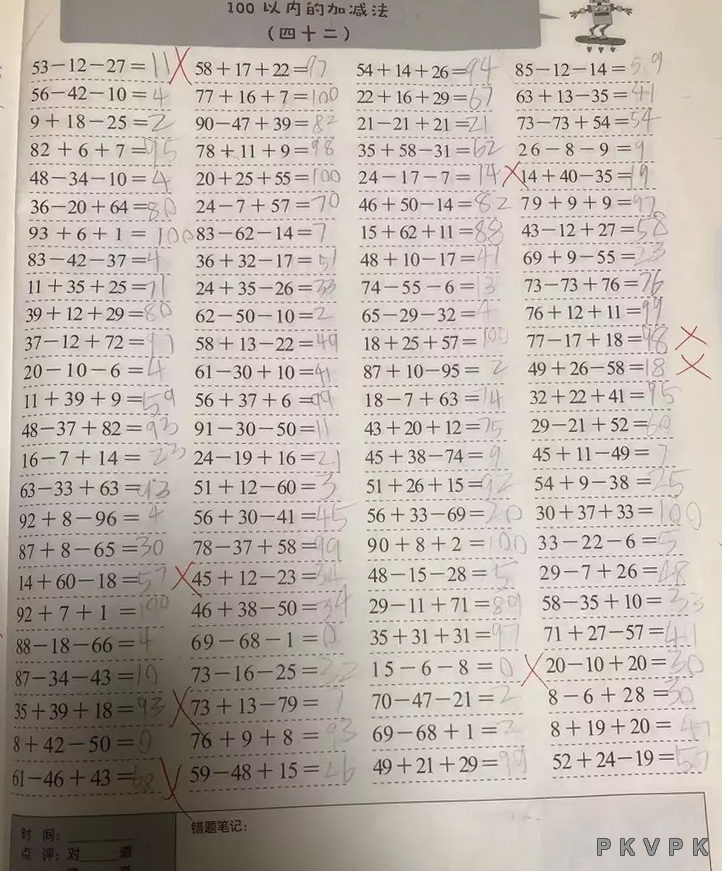 100 以内的加减法
(四十二)
53-12-27=11 58+17+22=97 54+14+26=94 85-12-14=59
56-42-10=4 77+16+7=100 22+16+29=67 63+13-35=41
9+18-25=2 90-47+39=82 21-21+21=21 73-73+54=54
82+6+7=95 78+11+9=98 35+58-31=62 26-8-9=9
48-34-10=4 20+25+55=100 24-17-7=14 14+40-35=19
36-20+64=80 24-7+57=70 46+50-14=82 79+9+9=97
93+6+1=100 83-62-14=7 15+62+11=88 43-12+27=58
83-42-37=4 36+32-17=51 48+10-17=41 69+9-55=23
11+35+25=71 24+35-26=33 74-55-6=13 73-73+76=76
39+12+29=80 62-50-10=2 65-29-32=4 76+12+11=99
37-12+72=97 58+13-22=49 18+25+57=100 77-17+18=98
20-10-6=4 61-30+10=41 87+10-95=2 49+26-58=18
11+39+9=59 56+37+6=99 18-7+63=14 32+22+41=95
48-37+82=93 91-30-50=11 43+20+12=75 29-21+52=60
16-7+14=23 24-19+16=21 45+38-74=9 45+11-49=7
63-33+63=93 51+12-60=3 51+26+15=92 54+9-38=25
92+8-96=4 56+30-41=45 56+33-69=20 30+37+33=100
87+8-65=30 78-37+58=99 90+8+2=100 33-22-6=5
14+60-18=57 45+12-23=34 48-15-28=5 29-7+26=48
92+7+1=100 46+38-50=34 29-11+71=89 58-35+10=33
88-18-66=4 69-68-1=0 35+31+31=97 71+27-57=41
87-34-43=10 73-16-25=32 15-6-8=0 20-10+20=30
35+39+18=93 73+13-79=7 70-47-21=2 8-6+28=30
8+42-50=0 76+9+8=93 69-68+1=2 8+19+20=47
61-46+43=68 59-48+15=26 49+21+29=99 52+24-19=57
时 间:
错题笔记:
点 评: 对 道
PKVPK